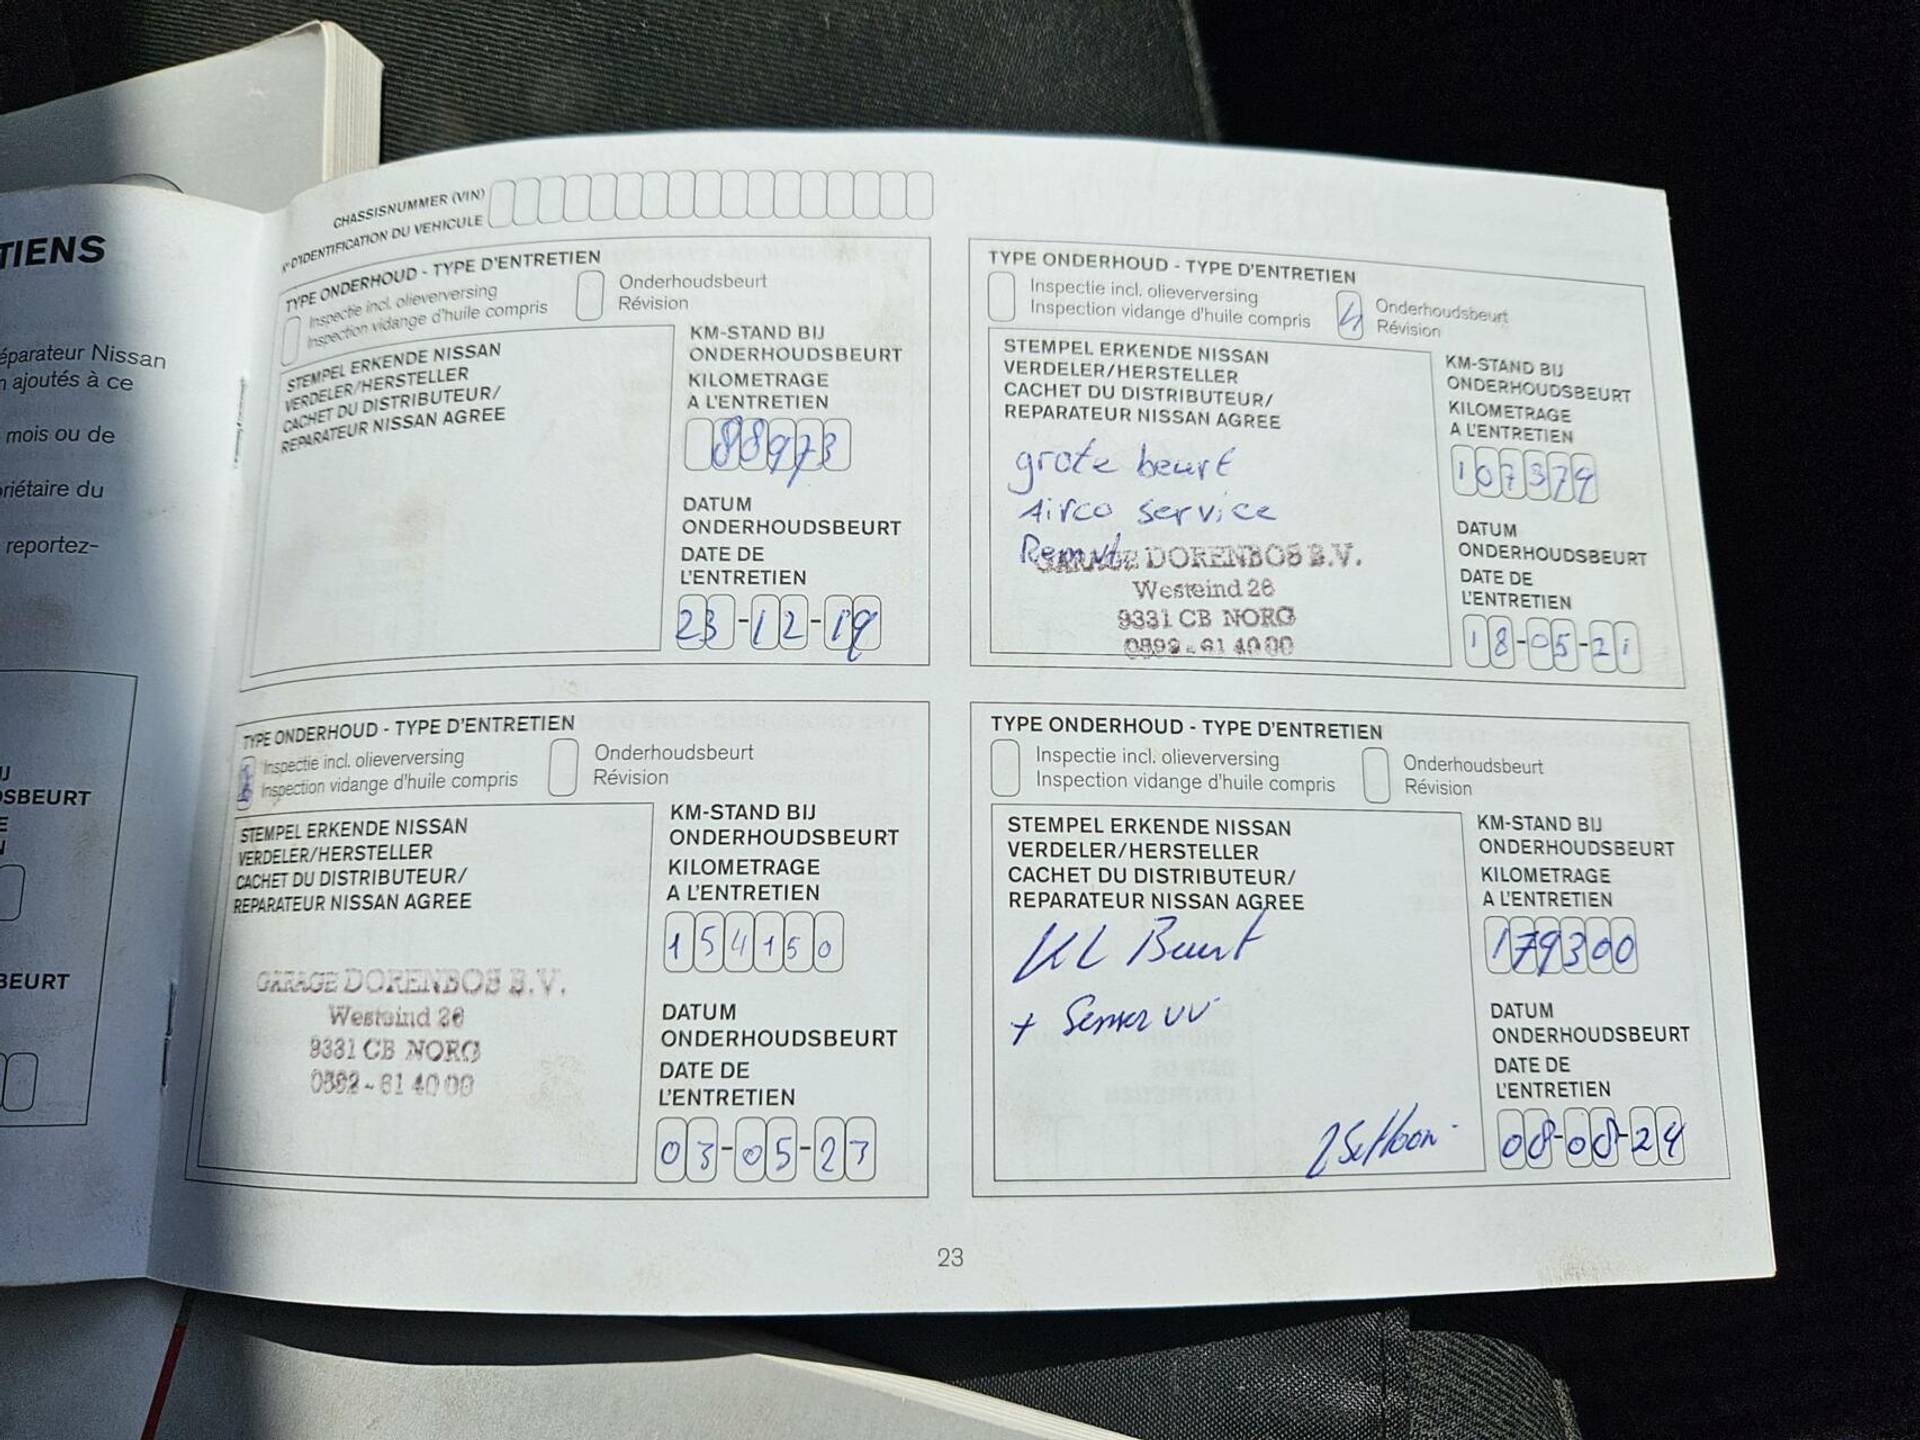 TIENS
éparateur Nissan
ajoutés à ce
mois ou de
riétaire du
reportez-
SBEURT
BEURT
CHASSISNUMMER (VIN)
N° D'IDENTIFICATION DU VEHICULE
TYPE ONDERHOUD - TYPE D'ENTRETIEN
Inspectie incl. olieverversing
Inspection vidange d'huile compris
Onderhoudsbeurt
Révision
STEMPEL ERKENDE NISSAN
VERDELER/HERSTELLER
CACHET DU DISTRIBUTEUR/
REPARATEUR NISSAN AGREE
KM-STAND BIJ
ONDERHOUDSBEURT
KILOMETRAGE
A L'ENTRETIEN
88973
DATUM
ONDERHOUDSBEURT
DATE DE
L'ENTRETIEN
23-12-19
TYPE ONDERHOUD - TYPE D'ENTRETIEN
Inspectie incl. olieverversing
Inspection vidange d'huile compris
Onderhoudsbeurt
Révision
STEMPEL ERKENDE NISSAN
VERDELER/HERSTELLER
CACHET DU DISTRIBUTEUR/
REPARATEUR NISSAN AGREE
grote beurt
Airco service
GARAGE DORENBOS B.V.
Westeind 26
9331 CB NORG
0592-61 40 00
KM-STAND BIJ
ONDERHOUDSBEURT
KILOMETRAGE
A L'ENTRETIEN
107379
DATUM
ONDERHOUDSBEURT
DATE DE
L'ENTRETIEN
18-05-21
TYPE ONDERHOUD - TYPE D'ENTRETIEN
Inspectie incl. olieverversing
Inspection vidange d'huile compris
Onderhoudsbeurt
Révision
STEMPEL ERKENDE NISSAN
VERDELER/HERSTELLER
CACHET DU DISTRIBUTEUR/
REPARATEUR NISSAN AGREE
GARAGE DORENBOS B.V.
Westeind 26
9331 CB NORG
0592-61 40 00
KM-STAND BIJ
ONDERHOUDSBEURT
KILOMETRAGE
A L'ENTRETIEN
154150
DATUM
ONDERHOUDSBEURT
DATE DE
L'ENTRETIEN
03-05-23
TYPE ONDERHOUD - TYPE D'ENTRETIEN
Inspectie incl. olieverversing
Inspection vidange d'huile compris
Onderhoudsbeurt
Révision
STEMPEL ERKENDE NISSAN
VERDELER/HERSTELLER
CACHET DU DISTRIBUTEUR/
REPARATEUR NISSAN AGREE
KL Beurt
+
KM-STAND BIJ
ONDERHOUDSBEURT
KILOMETRAGE
A L'ENTRETIEN
179300
DATUM
ONDERHOUDSBEURT
DATE DE
L'ENTRETIEN
08-08-24
23